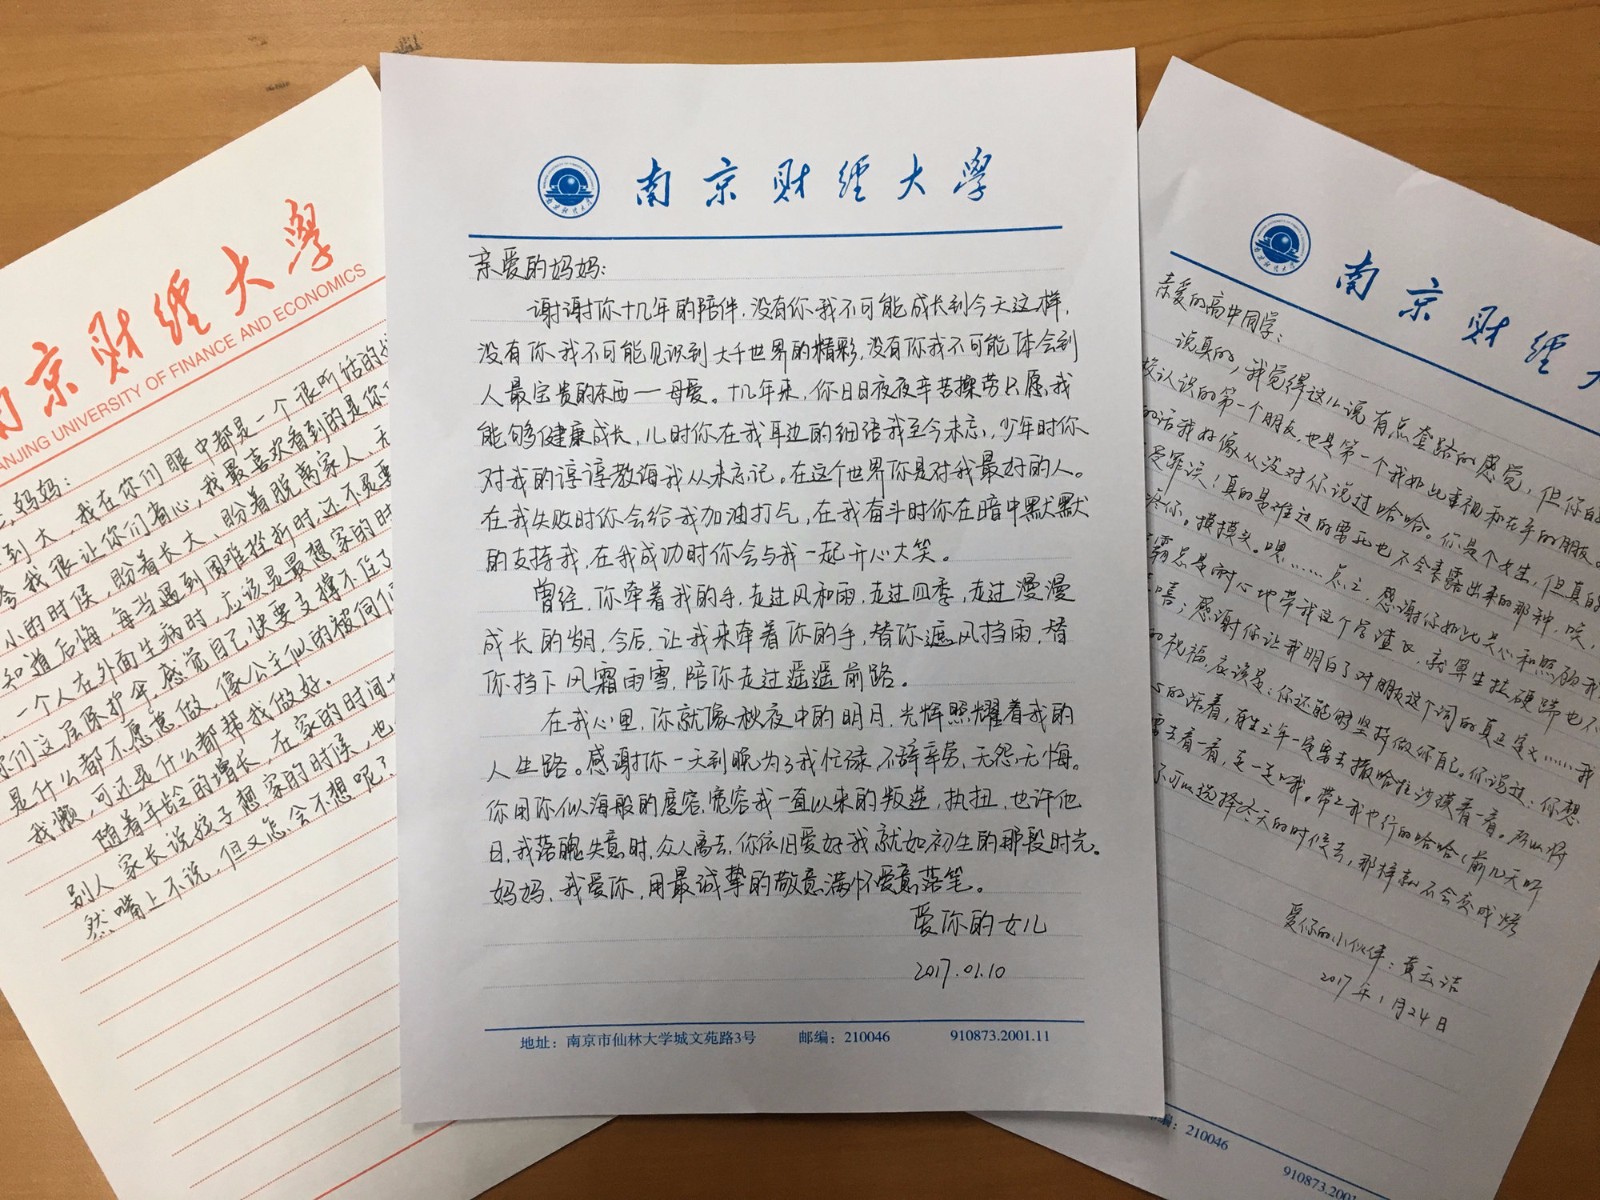 南京财经大學
亲爱的妈妈:
谢谢你十几年的陪伴,没有你我不可能成长到今天这样,
没有你我不可能见识到大千世界的精彩,没有你我不可能体会到
人最宝贵的东西一母爱。十几年来,你日日夜夜辛苦操劳只愿我
能够健康成长,儿时你在我耳边的细语我至今未忘,少年时你
对我的谆谆教诲我从未忘记。在这个世界你是对我最好的人。
在我失败时你会给我加油打气,在我奋斗时你在暗中默默
的支持我,在我成功时你会与我一起开心大笑。
曾经,你牵着我的手,走过风和雨,走过四季,走过漫漫
成长的岁月,今后,让我来牵着你的手,替你遮风挡雨,替
你挡下风霜雨雪,陪你走过遥遥前路。
在我心里,你就像秋夜中的明月,光辉照耀着我的
人生路。感谢你一天到晚为了我忙碌,不辞辛劳,无怨无悔。
你用你似海般的度容,宽容我一直以来的叛逆,执扭,也许他
日,我落魄失意时,众人离去,你依旧爱好我就如初生的那段时光。
妈妈,我爱你,用最诚挚的敬意满怀爱意落笔。
爱你的女儿
2017.01.10
地址:南京市仙林大学城文苑路3号 邮编:210046 910873.2001.11
南京财经大學
NANJING UNIVERSITY OF FINANCE AND ECONOMICS
妈妈:
到大,我在你们眼中都是一个很听话的
夸我很让你们省心,我最喜欢看到的是你
小的时候,盼着长大、盼着脱离家人、
知道后悔,每当遇到困难挫折时,还不是要
一个人在外面生病时,应该是最想家的时
你们这层保护伞,感觉自己快要支撑不住了
是什么都不愿意做,像公主似的被伺
我懒,可还是什么都帮我做好。
随着年龄的增长,在家的时间
别人家长说孩子想家的时候,也
然嘴上不说,但又怎会不想呢?
南京财经大
亲爱的高中同学:
说真的,我觉得这么说有点套路的感觉,但你
校认识的第一个朋友,也是第一个我如此重视和在乎的朋友
的话我好像从没对你说过哈哈。你是个女生,但真的
是罪误!真的是难过的要死也不会表露出来的那种,唉,
疼你。摸摸头。嘿……总之,感谢你如此关心和照顾我
霸总是耐心地带我这个学渣飞,就算生拉硬蹄也不
嘻;感谢你让我明白了对朋友这个词的真正定义……我
的祝福,应该是:你还能够坚持做你自己。你说过:你想
的活着,有生之年一定要去撒哈拉沙漠看看。所以将
要去看一看,走一走哦。带上我也行的哈哈(前几天听
你可以选择冬天的时候去,那样就不会变成烤
爱你的小伙伴:黄云洁
2017年1月24日
编:210046
910873.2001